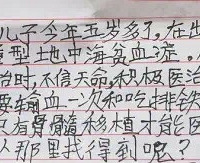 儿子今年五岁多了,在出
型地中海贫血症,
治时,不信天命,积极医治
要输血一次和吃排铁
只有骨髓移植才能医
那里找得到呢?